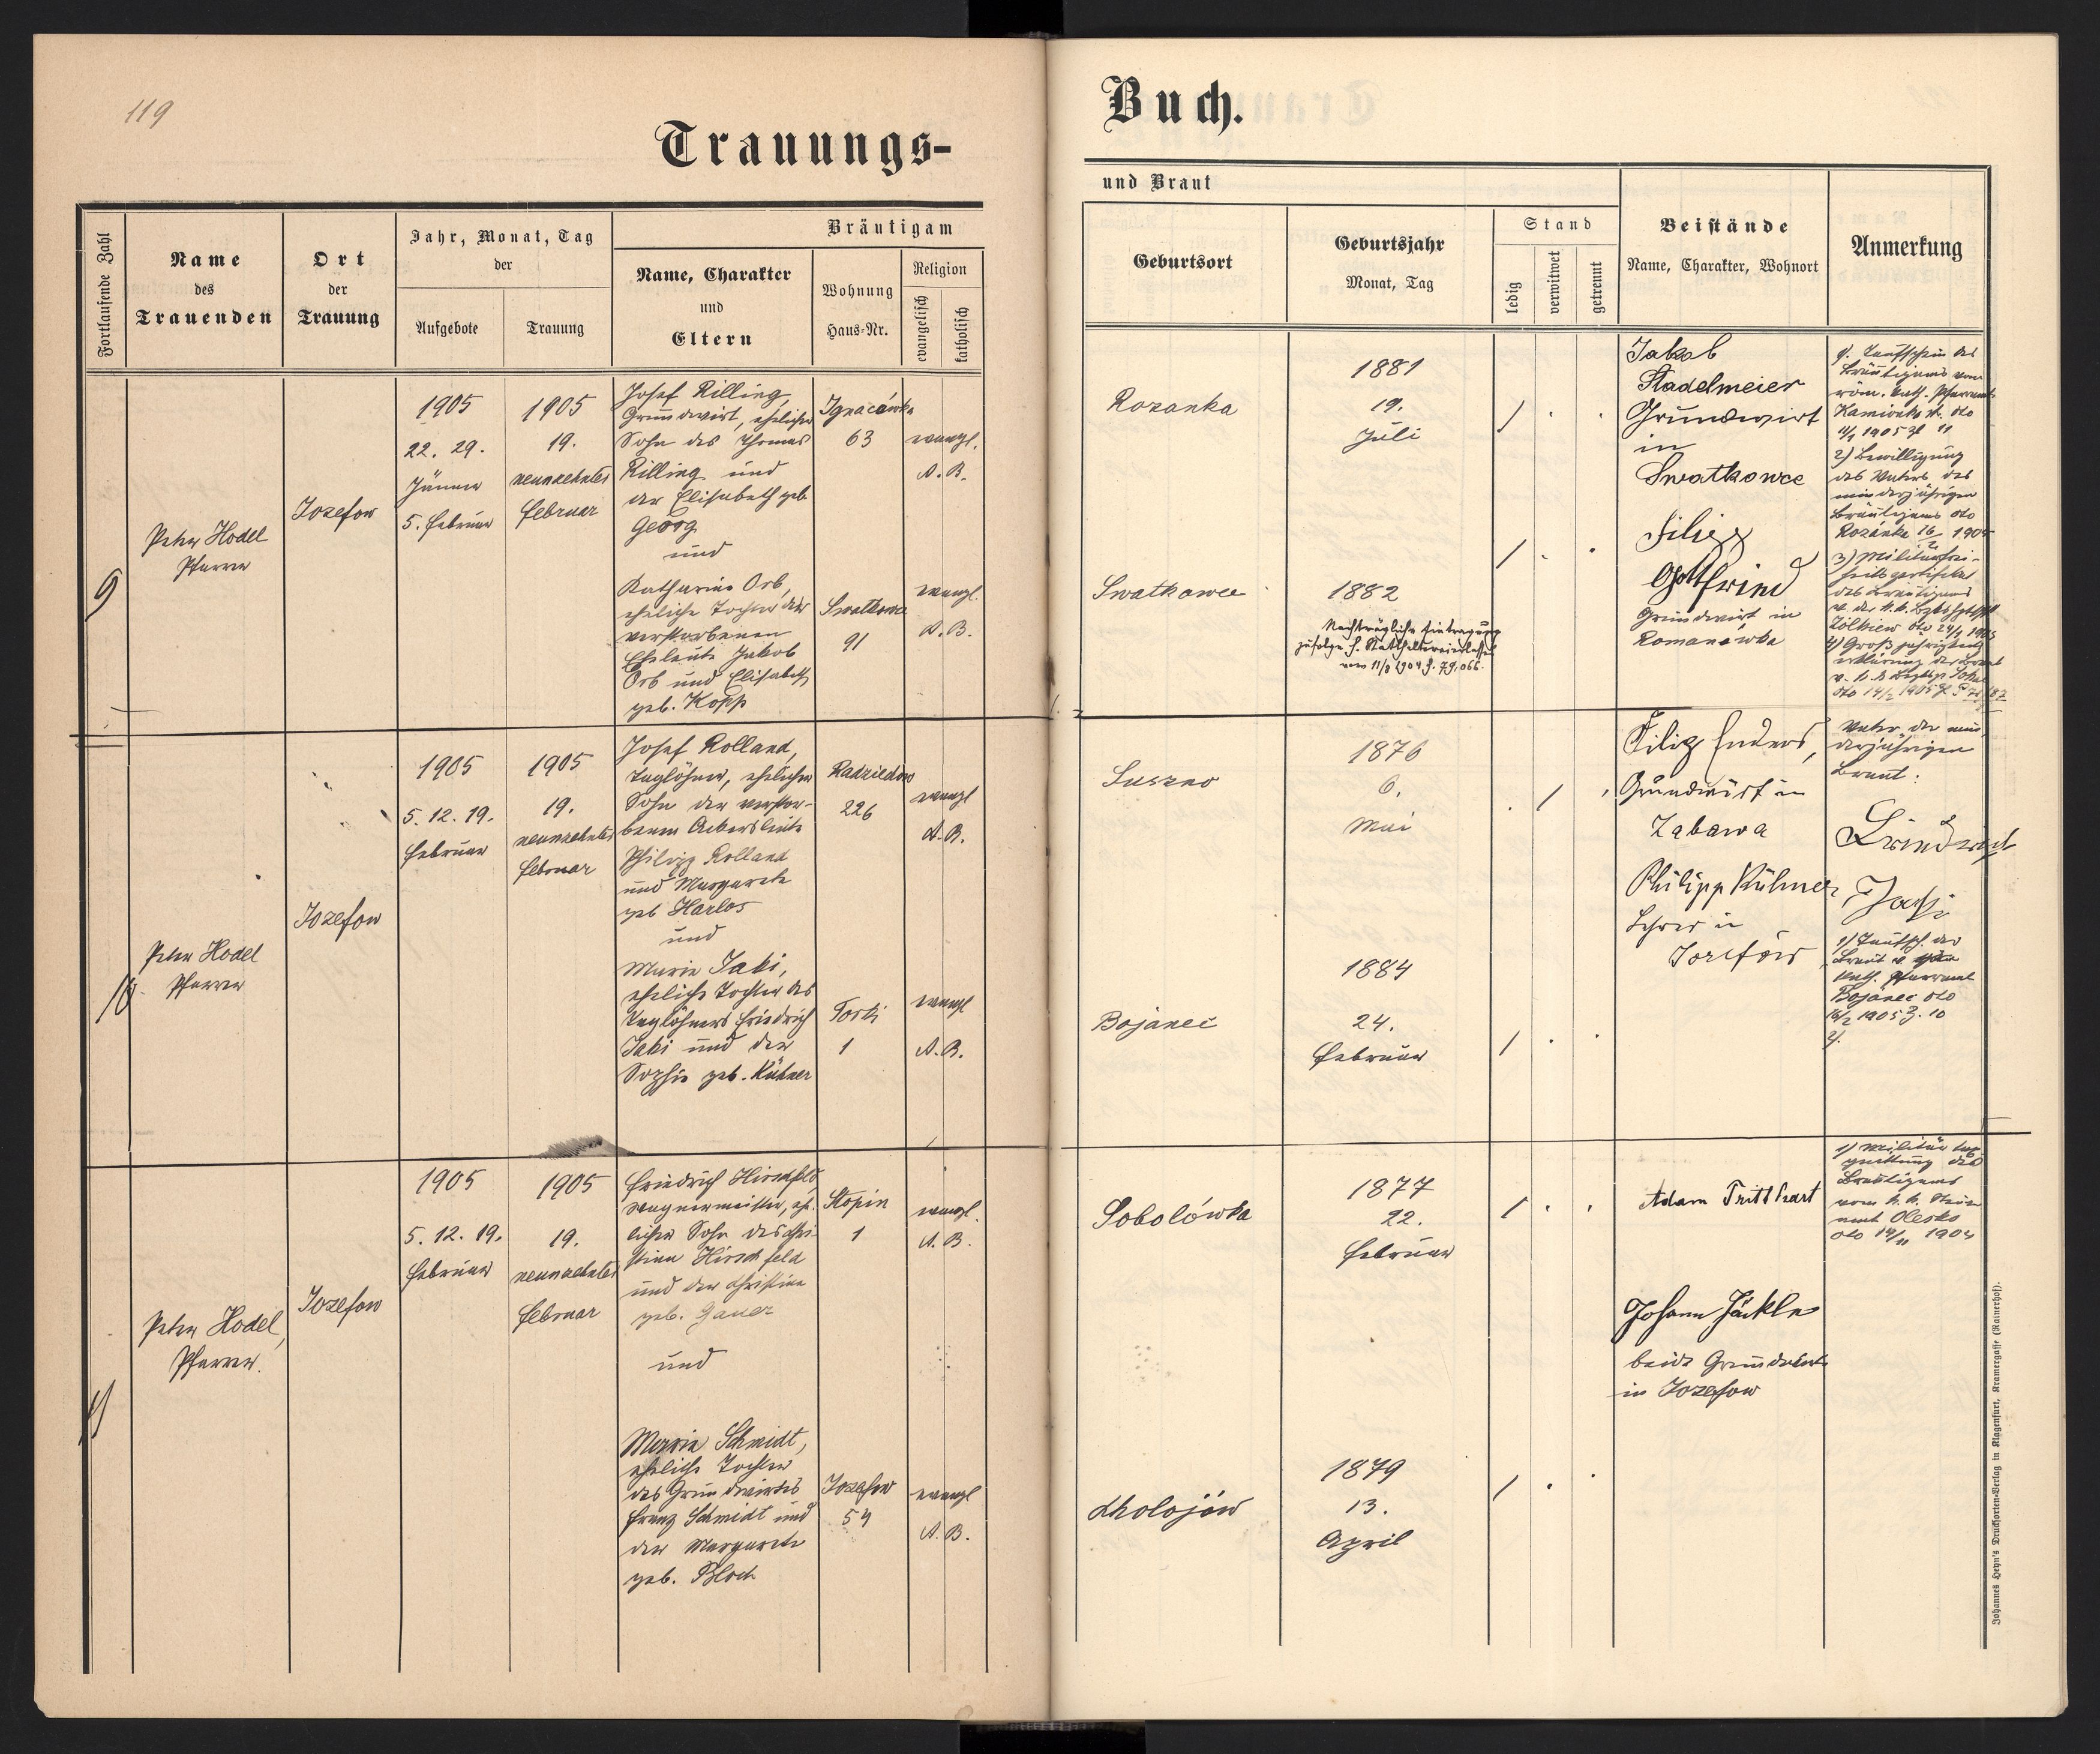 119
Trauungs-
Buch.
Fortlaufende Zahl
Name
des
Trauenden
Ort
der
Trauung
Jahr, Monat, Tag
der
Aufgebote
Trauung
Bräutigam
Name, Charakter
und
Eltern
Wohnung
Haus-Nr.
Religion
evangelisch
katholisch
und Braut
Geburtsort
Geburtsjahr
Monat, Tag
Stand
ledig
verwitwet
getrennt
Beistände
Name, Charakter, Wohnort
Anmerkung
9
Peter Hodel
Pfarrer
Jozefow
1905
22. 29.
Jänner
5. Februar
1905
19.
neunzehnter
Februar
Josef Rilling,
Grundwirt, ehelicher
Sohn des Thomas
Rilling und
der Elisabeth geb.
Georg
und
Katharina Orb,
eheliche Tochter der
verstorbenen
Eheleute Jakob
Orb und Elisabeth
geb. Kopp
Ignacówka
63
evangl.
A. B.
Swatkowce
91
evangl.
A. B.
Rozanka
1881
19.
Juli
Swatkowce
1882
Nachträgliche Eintragung
zufolge h. Statthaltereierlasses
vom 11/8 1904 Z. 79.066
Jakob
Stadelmeier
Grundwirt
in
Swatkowce
Filipp
Gottfried
Grundwirt in
Romanówka
1). Taufschein des
Bräutigams vom
röm. kath. Pfarramt
1905 Zl 11
2) Bewilligung
des Vaters des
minderjährigen
Bräutigams dto
Rozánka 16/2 1905
3) Militär
des Bräutigams
Zólkiew dto 24/1 1905
4) Großjährigkeits
erklärung der Braut
dto 14/2 1905
10.
Peter Hodel
Pfarrer
Jozefow
1905
5. 12. 19.
Februar
1905
19.
neunzehnter
Februar
Josef Rolland,
Taglöhner, ehelicher
Sohn der verstor-
benen Ackersleute
Philipp Rolland
und Margarete
geb Harlos
und
Maria Jaki,
eheliche Tochter des
Taglöhners Friedrich
Jaki und der
Sophie geb. Kühner
Radziechow
226
evangl
A. B.
Torki
1
evangl
A. B.
Suszno
1876
6.
Mai
Bojanec
1884
24.
Februar
Filip Enders,
Grundwirt in
Zabawa
Philipp Kühner
Lehrer in
Josefów
Vater der min
derjährigen
Braut:
Jaki
1) Taufsch. der
Braut v.
kath. Pfarramt
Bojanec dto
16/2 1905 Z. 10
11
Peter Hodel,
Pfarrer.
Jozefow
1905
5. 12. 19.
Februar
1905
19.
neunzehnter
Februar
Friedrich Hirschfeld
Wagnermeister, ehe-
licher Sohn des Chri-
stian Hirschfeld
und der Christine
geb. Gauer
und
Maria Schmidt,
eheliche Tochter
des Grundwirtes
Franz Schmidt und
der Margarete
geb. Bloch
Stopin
1
evangl.
A. B.
Jozefow
54
evangl
A. B.
Sobolówka
1877
22.
Februar
Cholojów
1879
13.
April
Adam Tritthart
Johann Jäckle
beide Grundwirte
in Jozefow
1) Militär
des
Bräutigams
vom k. k. Steuer
amt Olesko
dto 14/11 1904
Johannes Heyn's Drucksorten-Verlag in Klagenfurt, Kramergasse (Rainerhof).